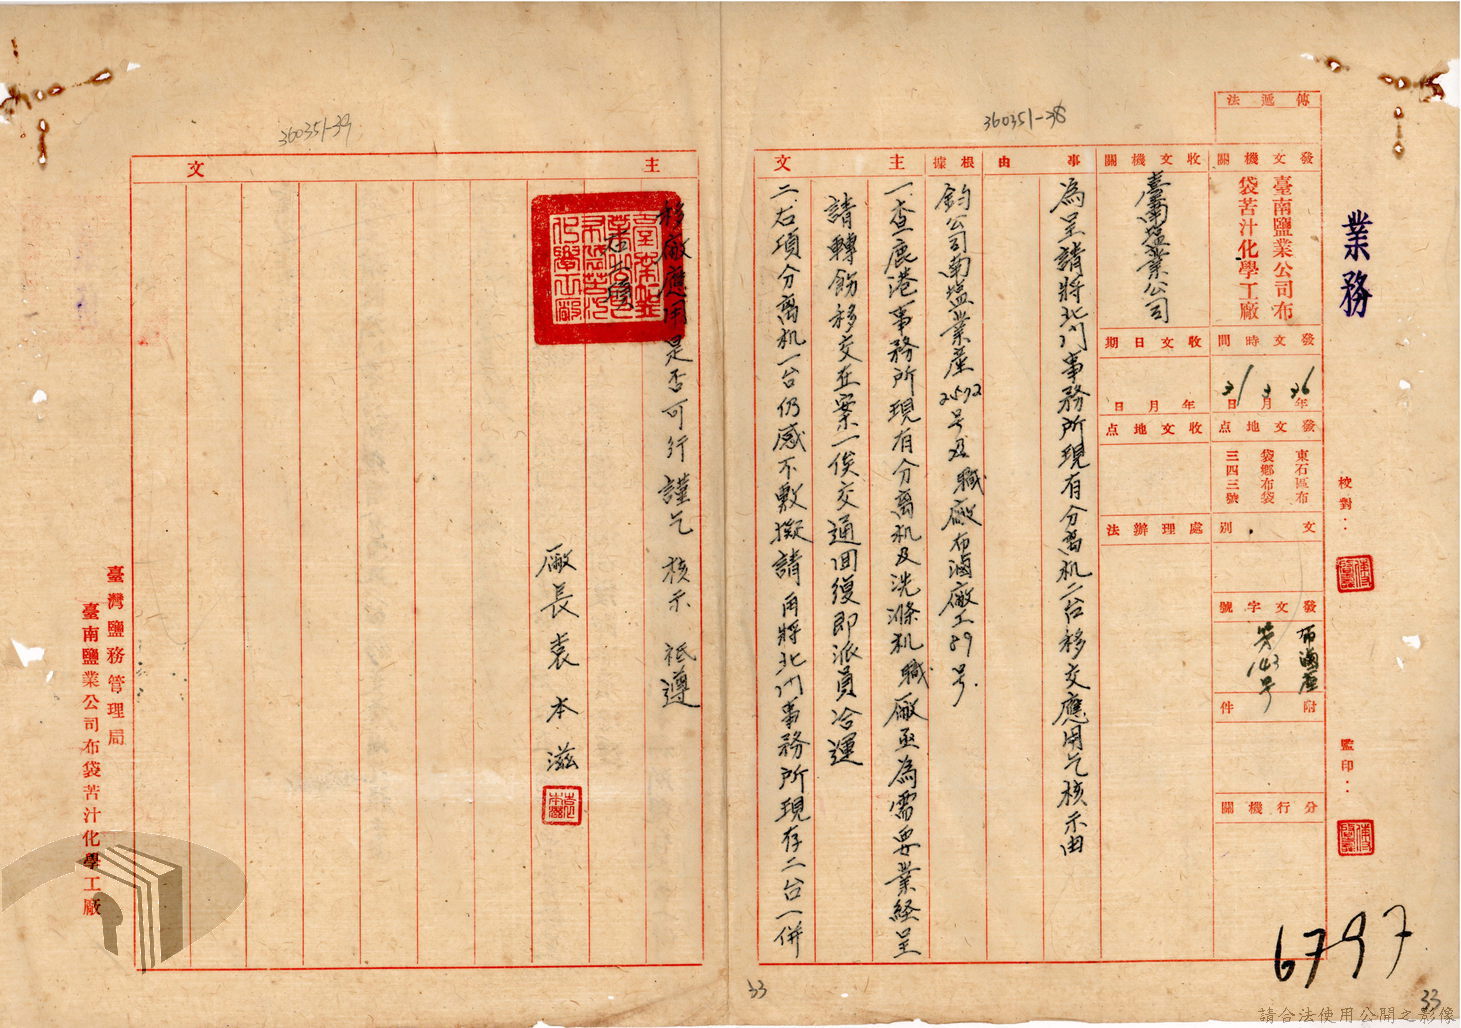 業務
校對：
監印：
傳遞法
發文機關
臺南鹽業公司布
袋苦汁化學工廠
發文時間
36年3月31日
發文地点
東石區布
袋鄉布袋
三四三號
文別
發文字號
布滷產
第143号
附件
分行機關
收文機關
臺南塩業公司
收文日期
年月日
收文地点
處理辦法
事由
為呈請將北门事務所現有分离机二台移交應用乞核示由
根據
鈞公司南塩業產2572号及職廠布滷廠工89号.
主文
一.查鹿港事務所現有分离机及洗滌机職廠亟為需要業経呈
請轉飭移交在案一俟交通回復即派員洽運
二.右項分离机一台仍感不敷擬請再將北门事務所現存二台一併
主文
移廠應用是否可行謹乞 核示 祗遵
廠長袁本滋
臺灣鹽務管理局
臺南鹽業公司布袋苦汁化學工廠
360351-38
360351-39
6797
33
33
請合法使用公開之影像